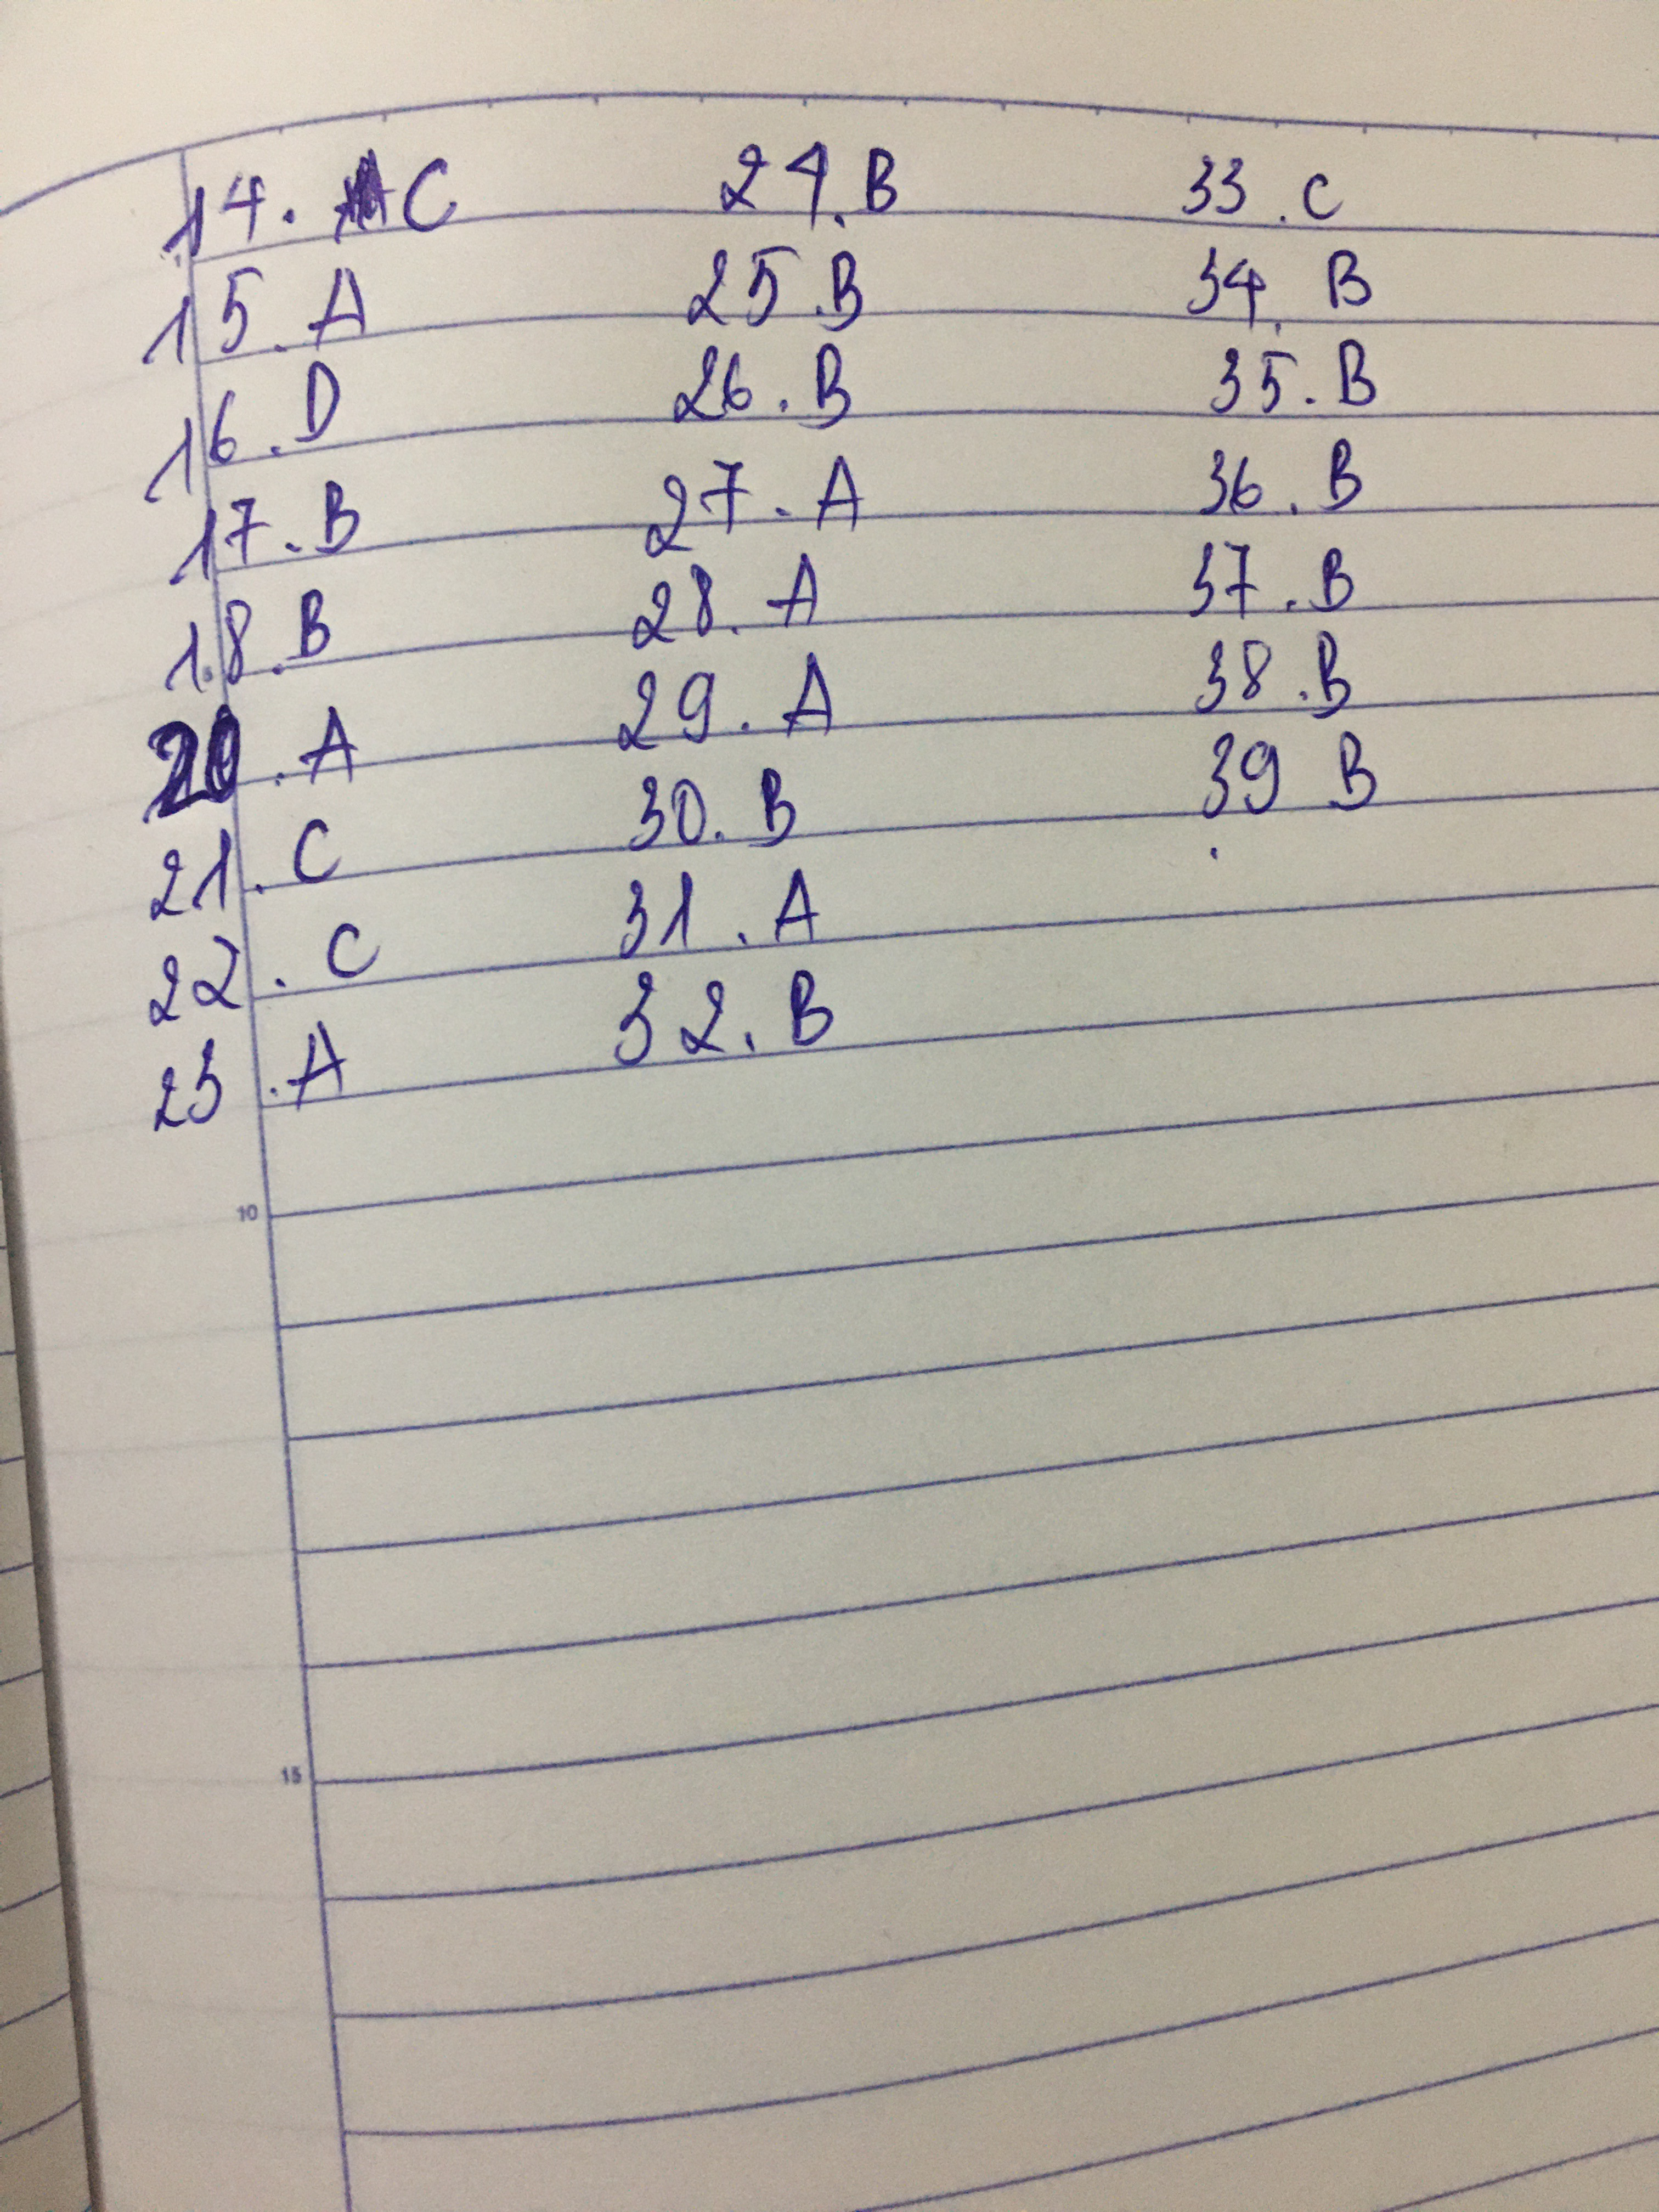 14. C
15. A
16. D
17. B
18. B
20. A
21. C
22. C
23. A
24. B
25. B
26. B
27. A
28. A
29. A
30. B
31. A
32. B
33. C
34. B
35. B
36. B
37. B
38. B
39 B
10
15